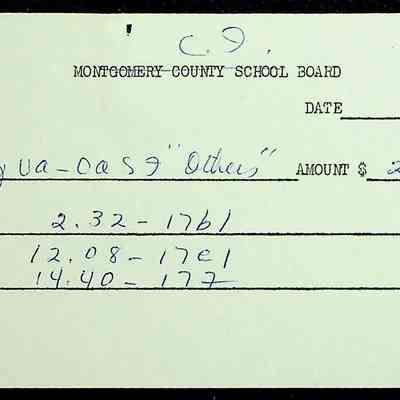 C. F.
MONTGOMERY COUNTY SCHOOL BOARD
DATE
Ua-Oa S F "Others" AMOUNT $ 2
2.32 - 17b1
12.08 - 17e1
14.40 - 177